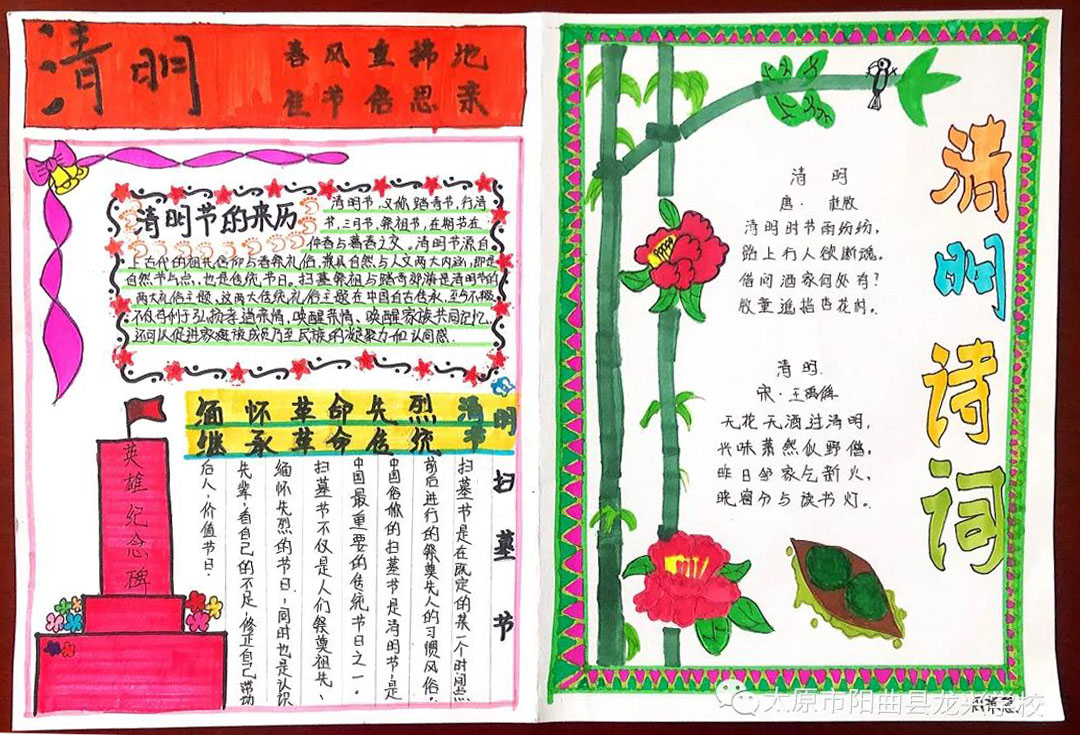 清明
春风重拂地
佳节倍思亲
清明节的来历
清明节,又称踏青节,行清
节,三月节,祭祖节,在期节在
仲春与暮春之交。清明节源自
上古代的祖先信仰与春祭礼俗,兼具自然与人文两大内涵,即是
自然节气点,也是传统节日。扫墓祭祖与踏青郊游是清明节的
两大礼俗主题,这两大传统礼俗主题在中国自古传承,至今不辍。
不仅有利于弘扬孝道亲情,唤醒亲情、唤醒家族共同记忆,
还可以促进家族成员乃至民族的凝聚力和认同感。
缅怀革命先烈
继承革命传统
清明节
英雄纪念碑
扫墓节
扫墓节是在既定的某一个时间点
前后进行的祭奠先人的习惯风俗。
中国俗称的扫墓节是清明节,是
中国最重要的传统节日之一。
扫墓节不仅是人们祭奠祖先、
缅怀先烈的节日,同时也是认识
先辈,看自己的不足,修正自己带动
后人,价值节日。
清明诗词
清明
唐·杜牧
清明时节雨纷纷,
路上行人欲断魂。
借问酒家何处有?
牧童遥指杏花村。
清明
宋·王禹偁
无花无酒过清明,
兴味萧然似野僧。
昨日邻家乞新火,
晓窗分与读书灯。
太原市阳曲县龙泉学校